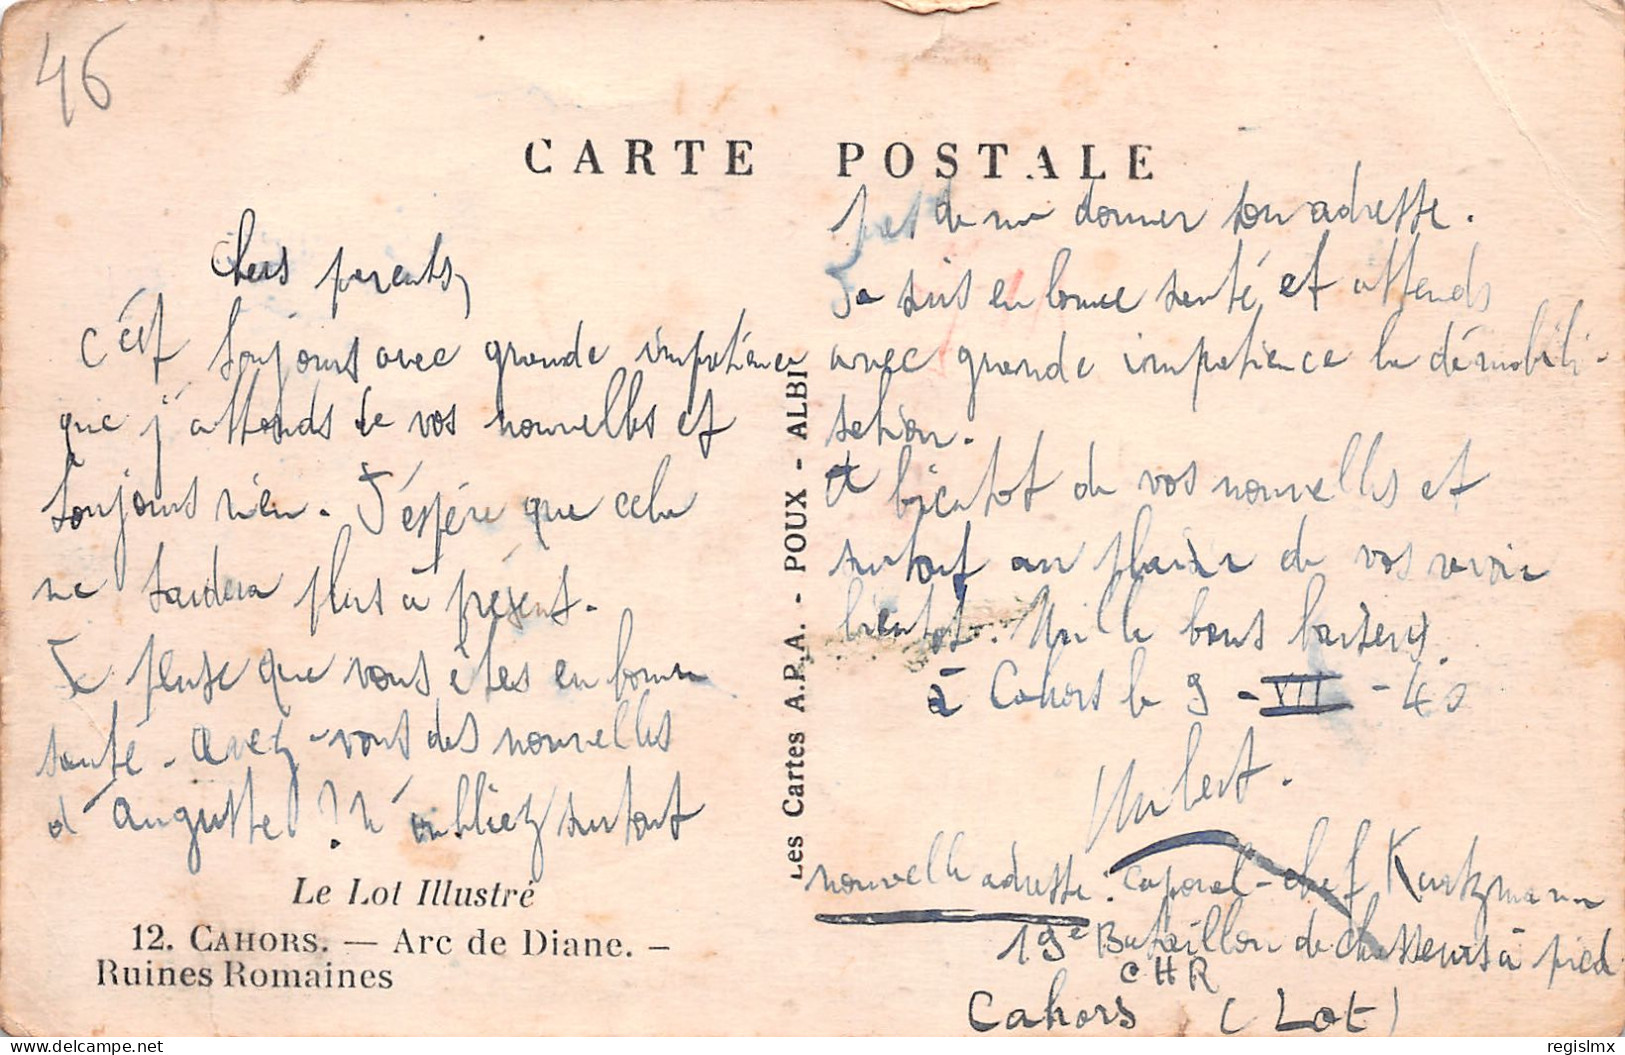 46
CARTE POSTALE
Chers parents,
c'est toujours avec grande impatience
que j'attends de vos nouvelles et
toujours rien. J'espère que cela
ne tardera plus à présent.
Je pense que vous êtes en bonne
santé. Avez-vous des nouvelles
d'Auguste ? N'oubliez surtout
pas de me donner son adresse.
Je suis en bonne santé, et attends
avec grande impatience la démobili-
sation.
A bientôt de vos nouvelles et
surtout au plaisir de vos revoir
bientôt. Mille bons baisers.
à Cahors le 9 - VII - 40
nouvelle adresse : caporal-chef Kurtzmann
19e Bataillon de chasseurs à pied
CHR
Cahors (Lot)
Les Cartes A.P.A. - POUX - ALBI
Le Lot Illustré
12. CAHORS. — Arc de Diane. —
Ruines Romaines
delcampe.net
regislmx